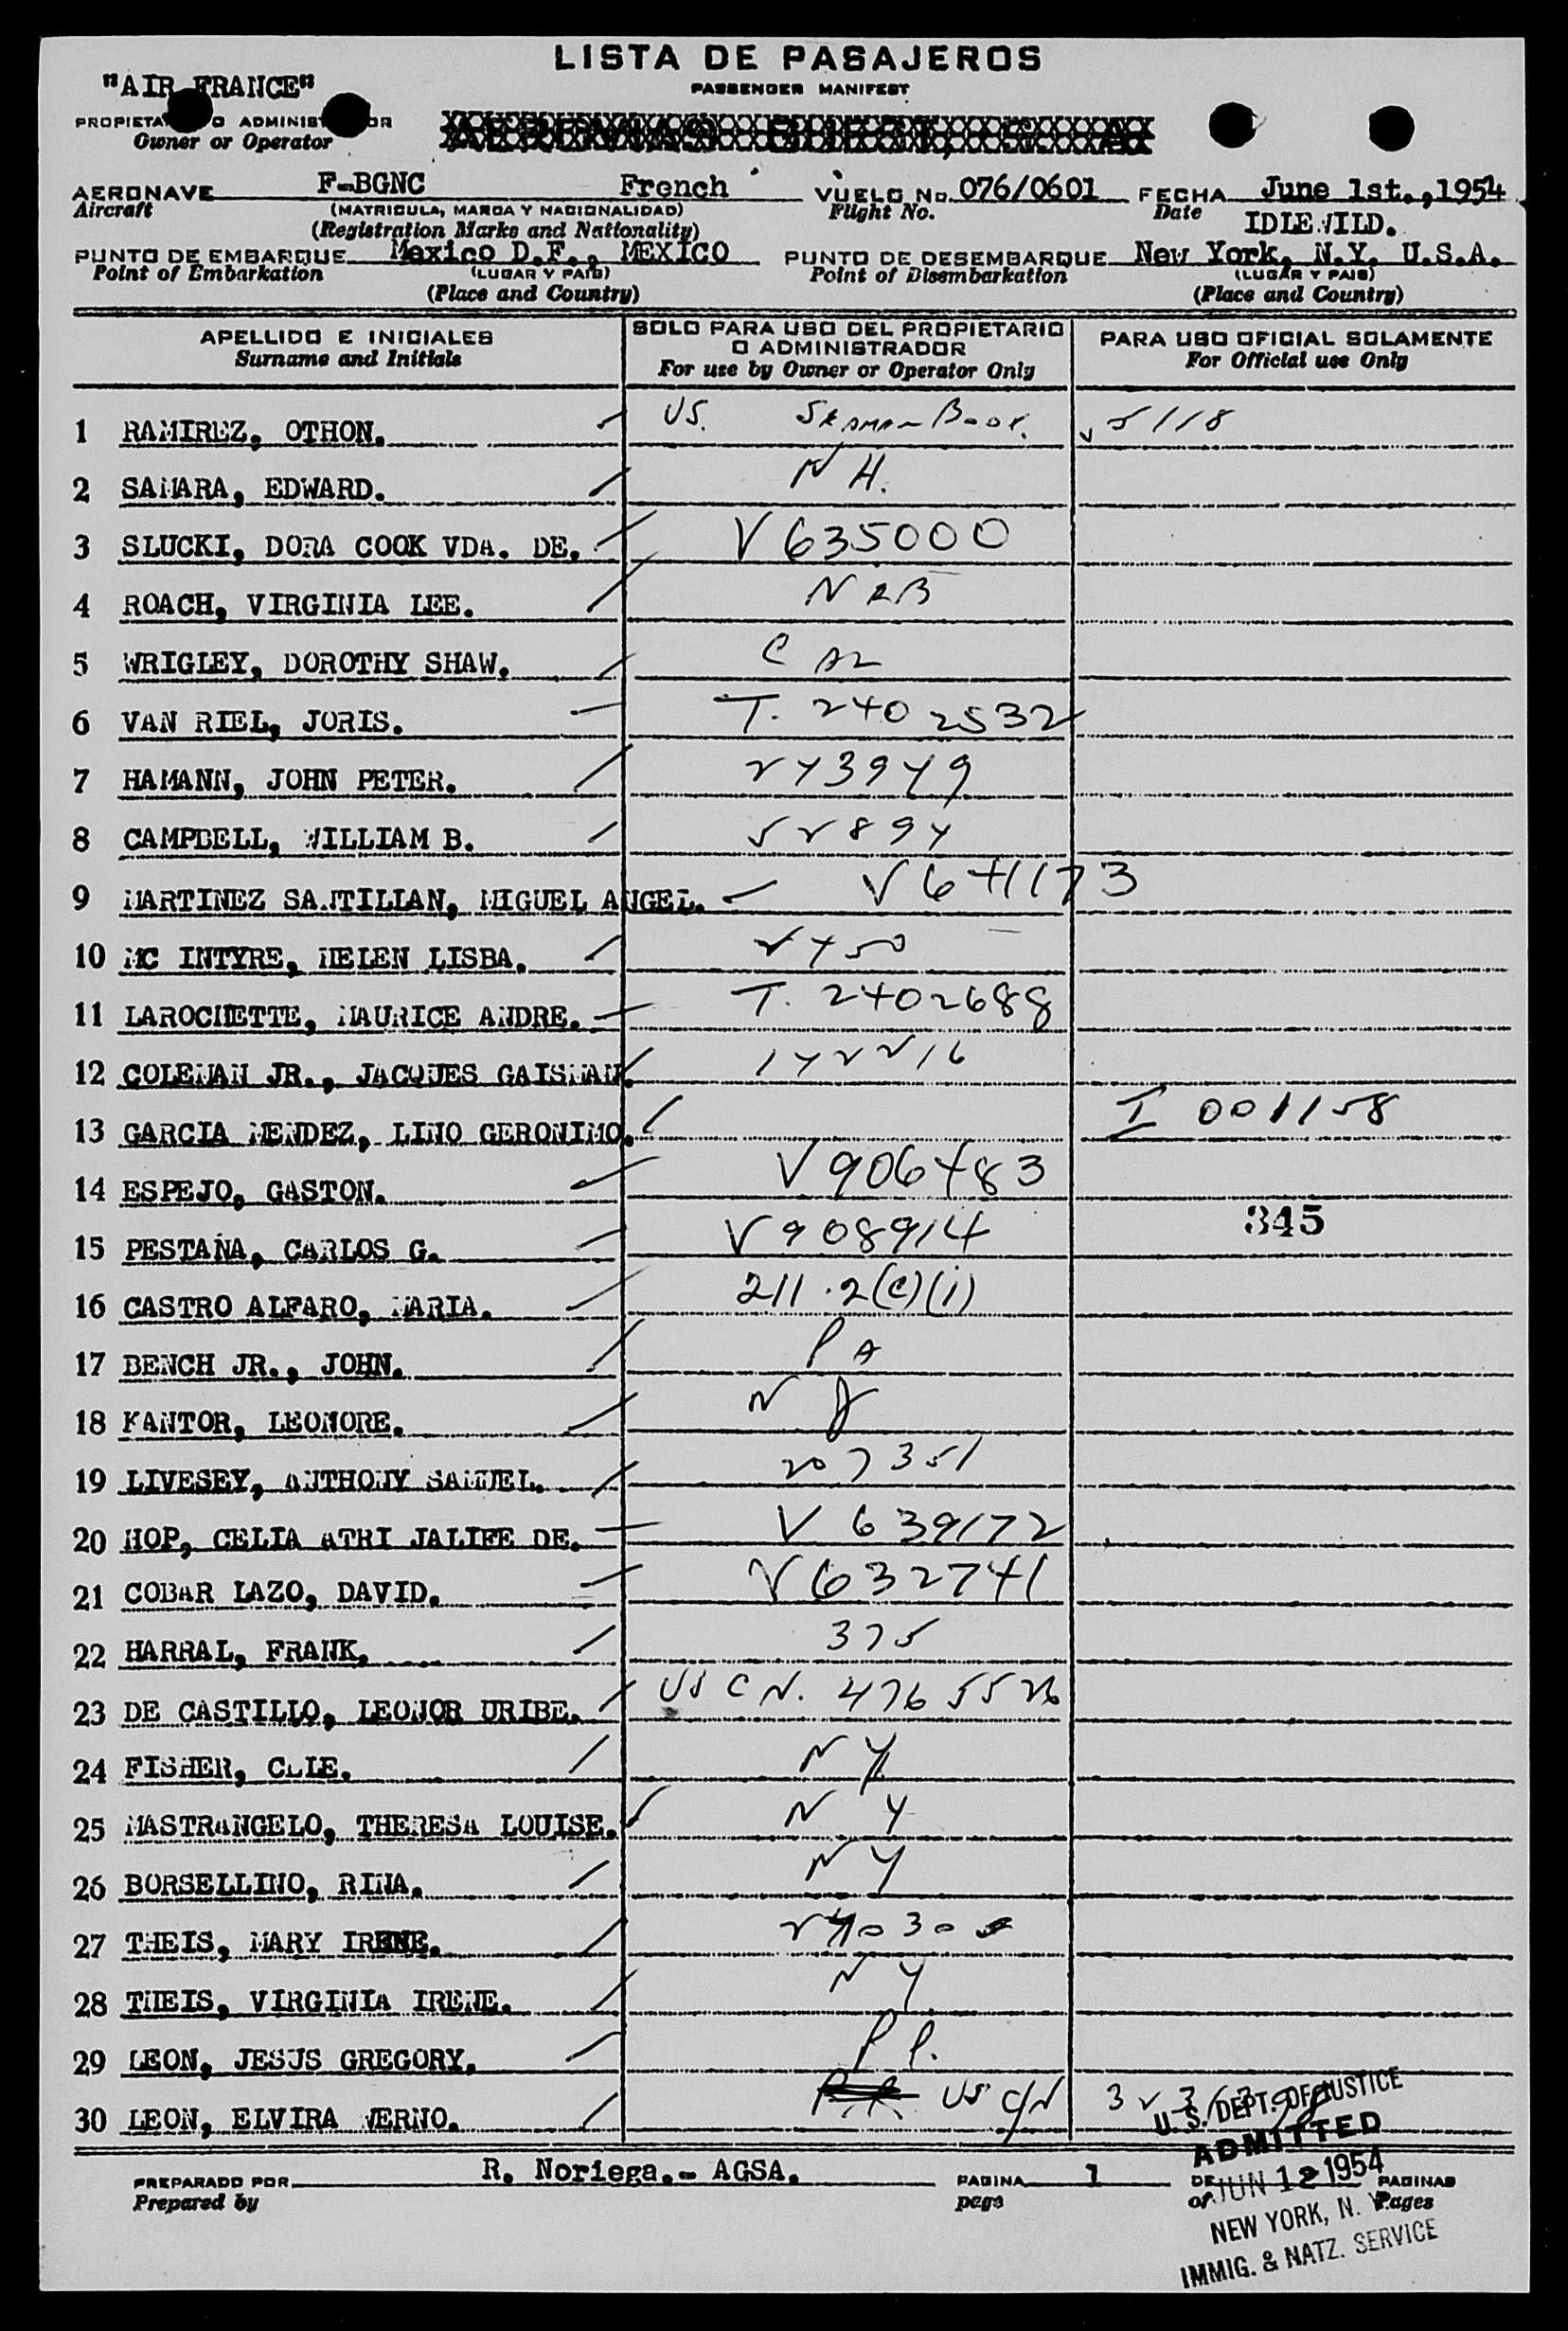 LISTA DE PASAJEROS
PASSENGER MANIFEST
"AIR FRANCE"
PROPIETA O ADMINIST OR
Owner or Operator
AERONAVE F-BGNC French VUELO No. 076/0601 FECHA June 1st., 1954
Aircraft (MATRICULA, MARCA Y NACIONALIDAD) Flight No. Date IDLEWILD.
(Registration Marks and Nationality)
PUNTO DE EMBARQUE Mexico D.F., MEXICO PUNTO DE DESEMBARQUE New York, N.Y. U.S.A.
Point of Embarkation (LUGAR Y PAIS) Point of Disembarkation (LUGAR Y PAIS)
(Place and Country) (Place and Country)
APELLIDO E INICIALES SOLO PARA USO DEL PROPIETARIO O ADMINISTRADOR PARA USO OFICIAL SOLAMENTE
Surname and Initials For use by Owner or Operator Only For Official use Only
1 RAMIREZ, OTHON. US. Seaman Book. 5118
2 SAMARA, EDWARD. N H.
3 SLUCKI, DORA COOK VDA. DE. V 635000
4 ROACH, VIRGINIA LEE. N EB
5 WRIGLEY, DOROTHY SHAW. CAL
6 VAN RIEL, JORIS. T. 2402532
7 HAMANN, JOHN PETER. 243949
8 CAMPBELL, WILLIAM B. 52894
9 MARTINEZ SANTILLAN, MIGUEL ANGEL. V 641173
10 MC INTYRE, HELEN LISBA. 2450
11 LAROCHETTE, MAURICE ANDRE. T. 2402688
12 COLEMAN JR., JACQUES GAISMAN. 142216
13 GARCIA MENDEZ, LINO GERONIMO. I 001158
14 ESPEJO, GASTON. V 906483
15 PESTAÑA, CARLOS G. V 908914 345
16 CASTRO ALFARO, MARIA. 211.2(c)(i)
17 BENCH JR., JOHN. PA
18 KANTOR, LEONORE. N J
19 LIVESEY, ANTHONY SAMUEL. 207351
20 HOP, CELIA ATRI JALIFE DE. V 639172
21 COBAR LAZO, DAVID. V 632741
22 HARRAL, FRANK. 375
23 DE CASTILLO, LEONOR URIBE. US C N. 4765526
24 FISHER, CLIE. N Y
25 MASTRANGELO, THERESA LOUISE. N Y
26 BORSELLINO, RINA. N Y
27 THEIS, MARY IRENE.
28 THEIS, VIRGINIA IRENE. N Y
29 LEON, JESUS GREGORY. P P.
30 LEON, ELVIRA VERNO. US C/N
U. S. DEPT. OF JUSTICE
ADMITTED
PREPARADO POR R. Noriega.- AGSA. PAGINA 1 DE PAGINAS
Prepared by page of Pages
JUN 1 1954
NEW YORK, N. Y.
IMMIG. & NATZ. SERVICE